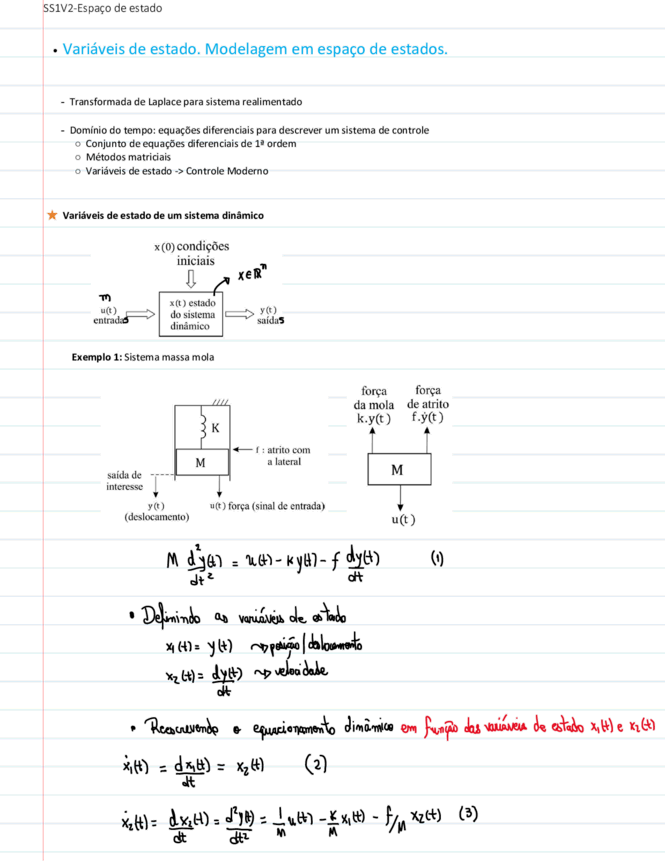 SS1V2-Espaço de estado
• Variáveis de estado. Modelagem em espaço de estados.
- Transformada de Laplace para sistema realimentado
- Domínio do tempo: equações diferenciais para descrever um sistema de controle
○ Conjunto de equações diferenciais de 1ª ordem
○ Métodos matriciais
○ Variáveis de estado -> Controle Moderno
★ Variáveis de estado de um sistema dinâmico
x(0) condições
iniciais
x ∈ ℝⁿ
m
u(t)
entradas
x(t) estado
do sistema
dinâmico
y(t)
saídas
Exemplo 1: Sistema massa mola
K
M
f : atrito com
a lateral
saída de
interesse
y(t)
(deslocamento)
u(t) força (sinal de entrada)
força
da mola
k.y(t)
força
de atrito
f.ẏ(t)
M
u(t)
M d²y(t)/dt² = u(t) - k y(t) - f dy(t)/dt (1)
• Definindo as variáveis de estado
x₁(t) = y(t) ⇝ posição/deslocamento
x₂(t) = dy(t)/dt ⇝ velocidade
• Reescrevendo o equacionamento dinâmico em função das variáveis de estado x₁(t) e x₂(t)
ẋ₁(t) = dx₁(t)/dt = x₂(t) (2)
ẋ₂(t) = dx₂(t)/dt = d²y(t)/dt² = 1/M u(t) - K/M x₁(t) - f/M x₂(t) (3)